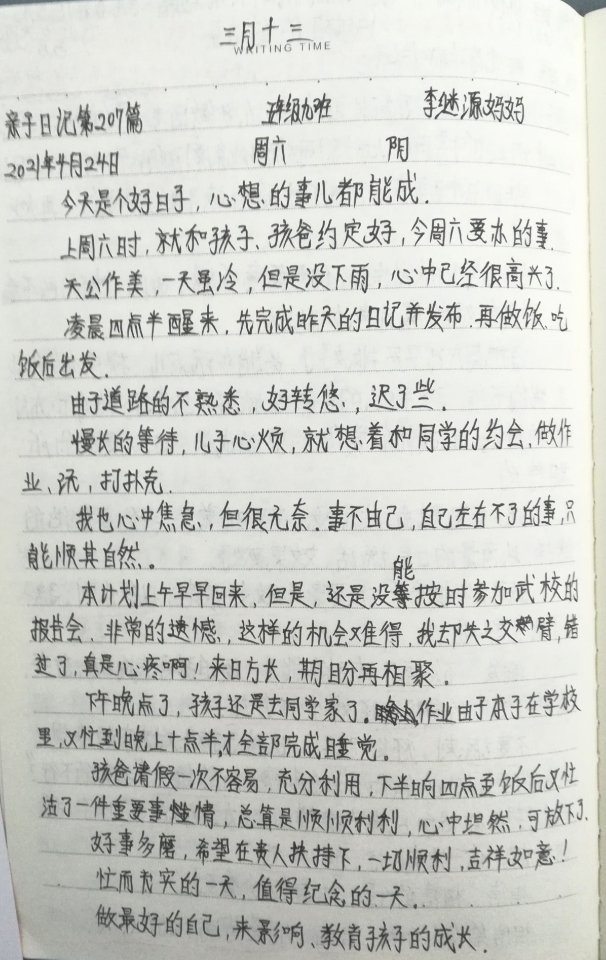 三月十三
WRITING TIME
亲子日记第207篇 五年级九班 李继源妈妈
2021年4月24日 周六 阴
今天是个好日子，心想的事儿都能成.
上周六时，就和孩子、孩爸约定好，今周六要办的事.
天公作美，一天虽冷，但是没下雨，心中已经很高兴了.
凌晨四点半醒来，先完成昨天的日记并发布.再做饭.吃
饭后出发.
由于道路的不熟悉，好转悠，迟了些.
慢长的等待，儿子心烦，就想着和同学的约会、做作
业、玩，打扑克.
我也心中焦急，但很无奈.事不由己，自己左右不了的事，只
能顺其自然.
本计划上午早早回来，但是，还是没能按时参加武校的
报告会.非常的遗憾，这样的机会又难得，我却失之交臂，错
过了，真是心疼啊！来日方长，期盼再相聚.
下午晚点了，孩子还是去同学家了.作业由于本子在学校
里，又忙到晚上十点半，才全部完成睡觉.
孩爸请假一次不容易，充分利用，下半晌四点至饭后又忙
活了一件重要事情，总算是顺顺利利，心中坦然，可放下了.
好事多磨，希望在贵人扶持下，一切顺利，吉祥如意！
忙而充实的一天，值得纪念的一天.
做最好的自己，来影响、教育孩子的成长.